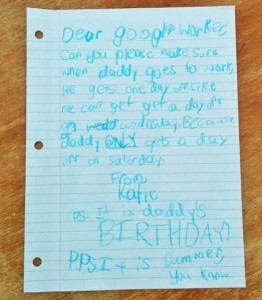 Dear google worker,
Can you please make sure
when daddy goes to work,
He gets one day off. like
He can get get a day off
on wedo wednesday. Because
daddy ONLY gets a day
off on saturday.
From,
Katie
Ps It is daddy's
BIRTHDAY!
PPS It is Summer,
You know